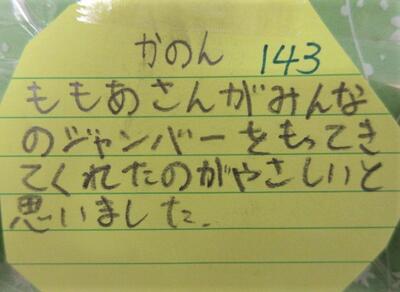 かのん 143
ももあさんがみんな
のジャンバーをもってき
てくれたのがやさしいと
思いました.